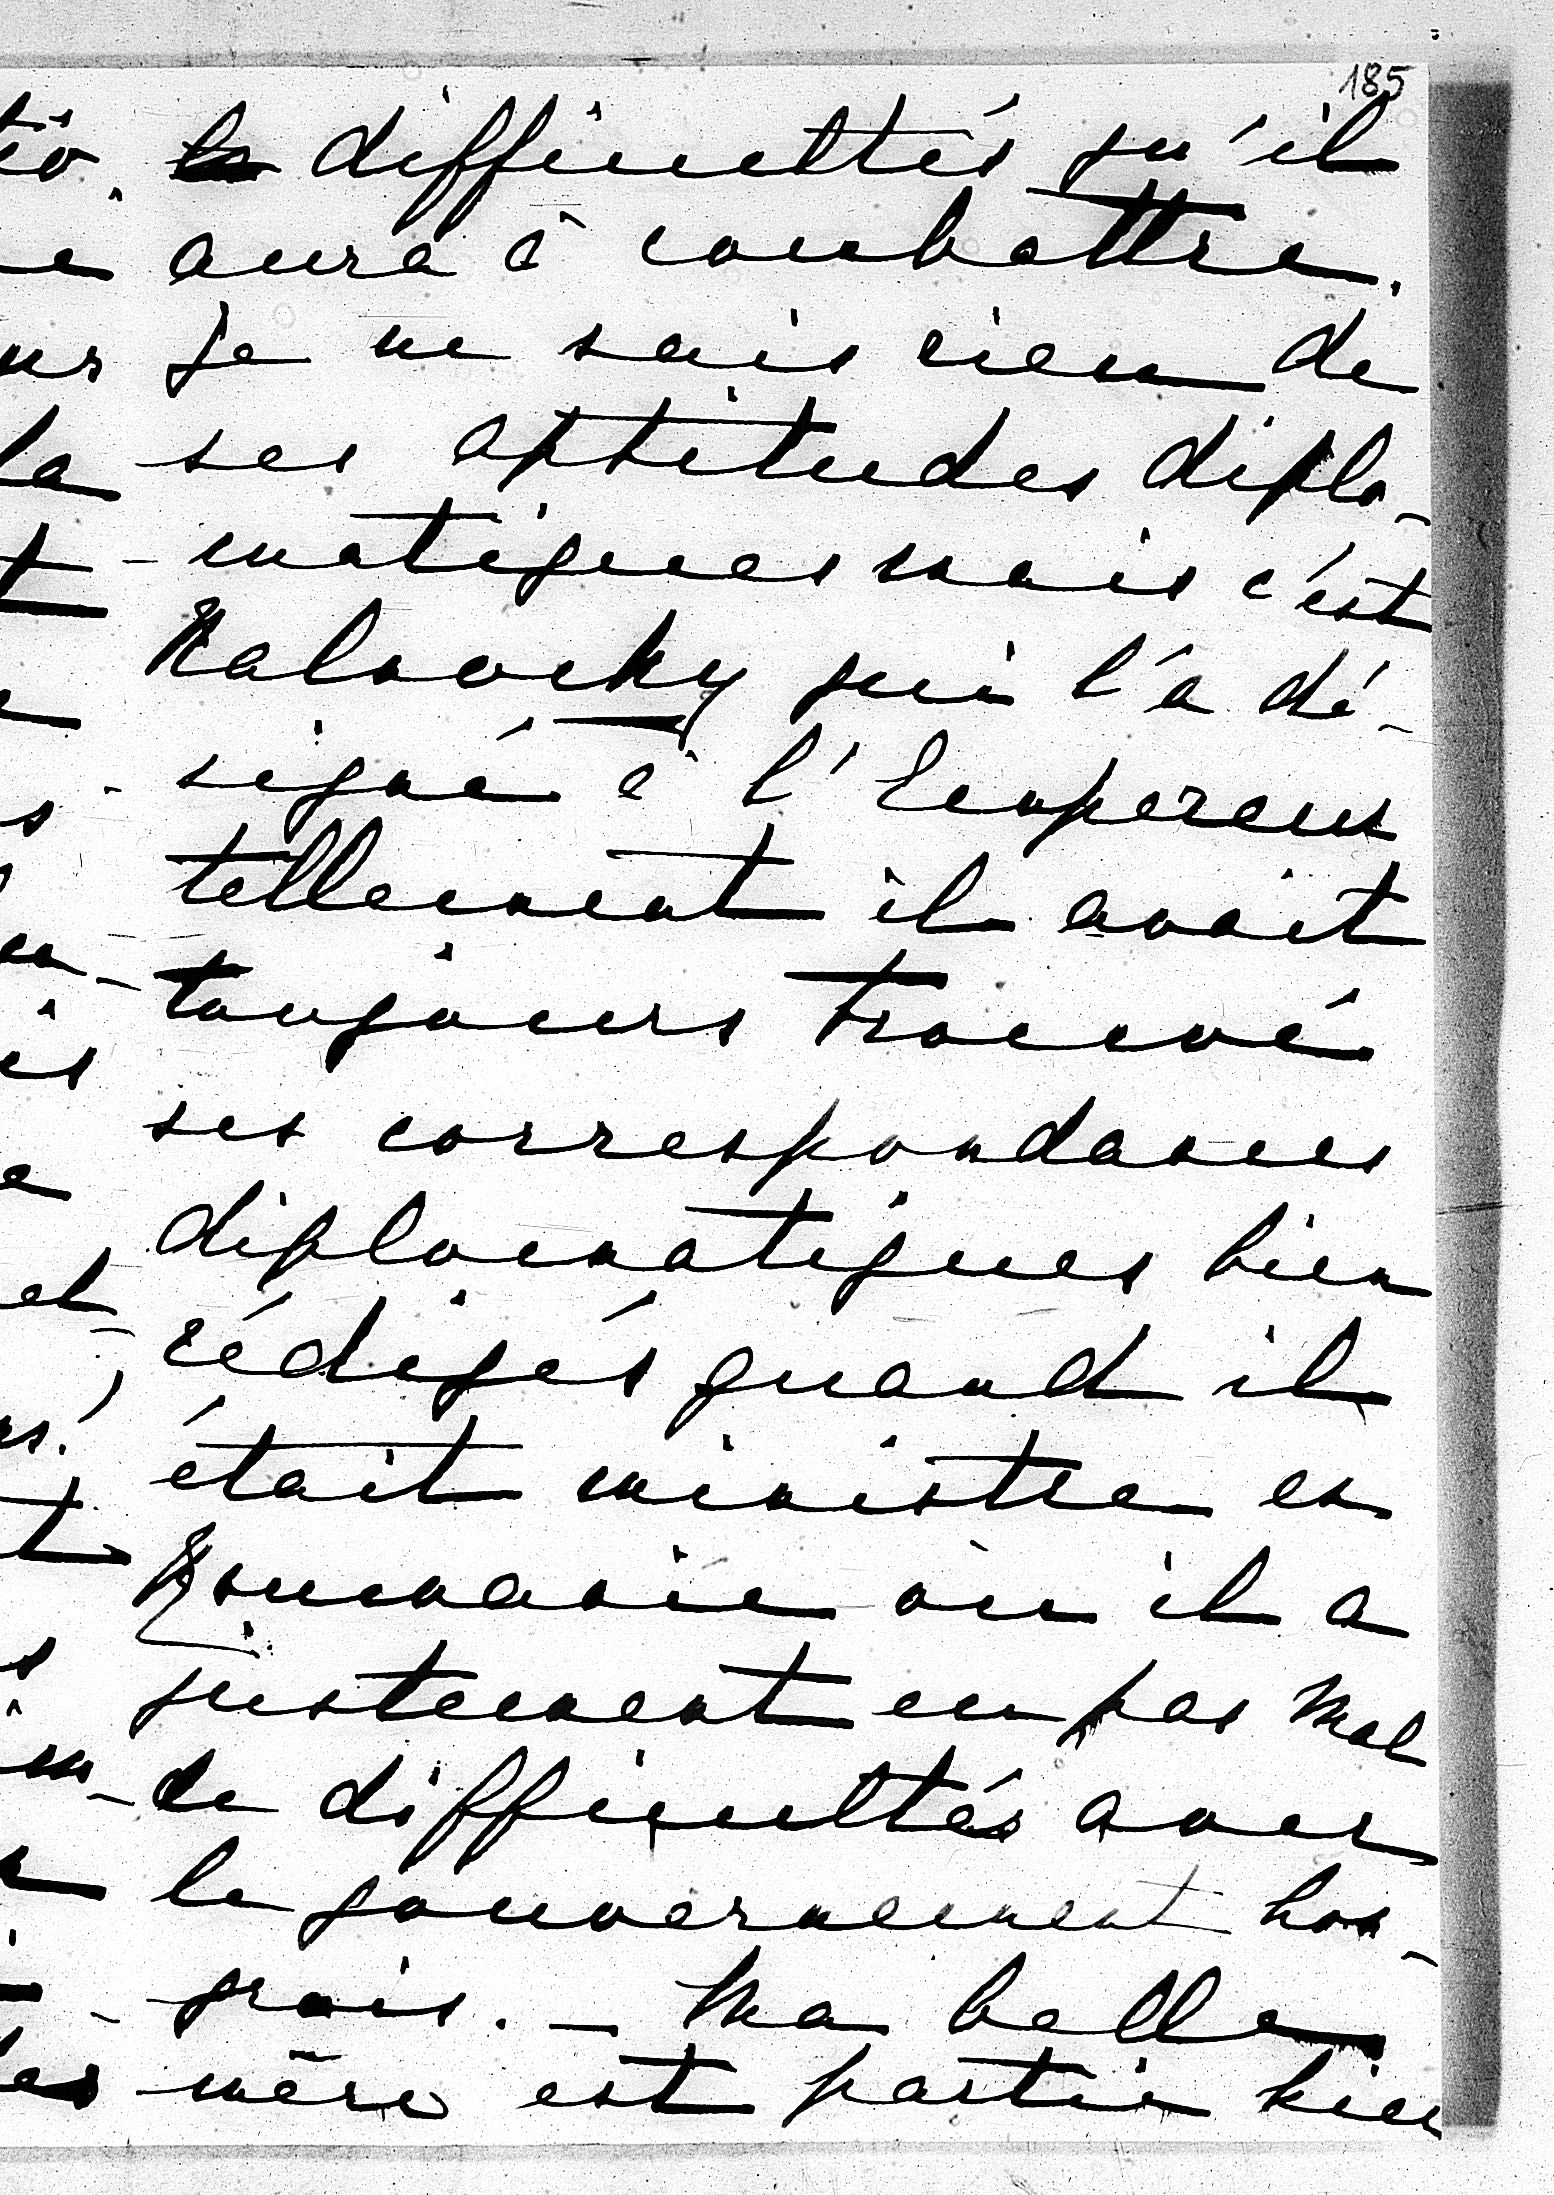 185
les difficultés qu'il
aura à combattre.
Je ne sais rien de
ses aptitudes diplo-
-matiques mais c'est
Kalnocky qui l'a dé-
-signé à l'Empereur
tellement il avait
toujours trouvé
ses correspondances
diplomatiques bien
rédigés quand il
était ministre en
Roumanie où il a
justement eu pas mal
de difficultés avec
le gouvernement hon-
-grois. - Ma belle
mère est partie bien